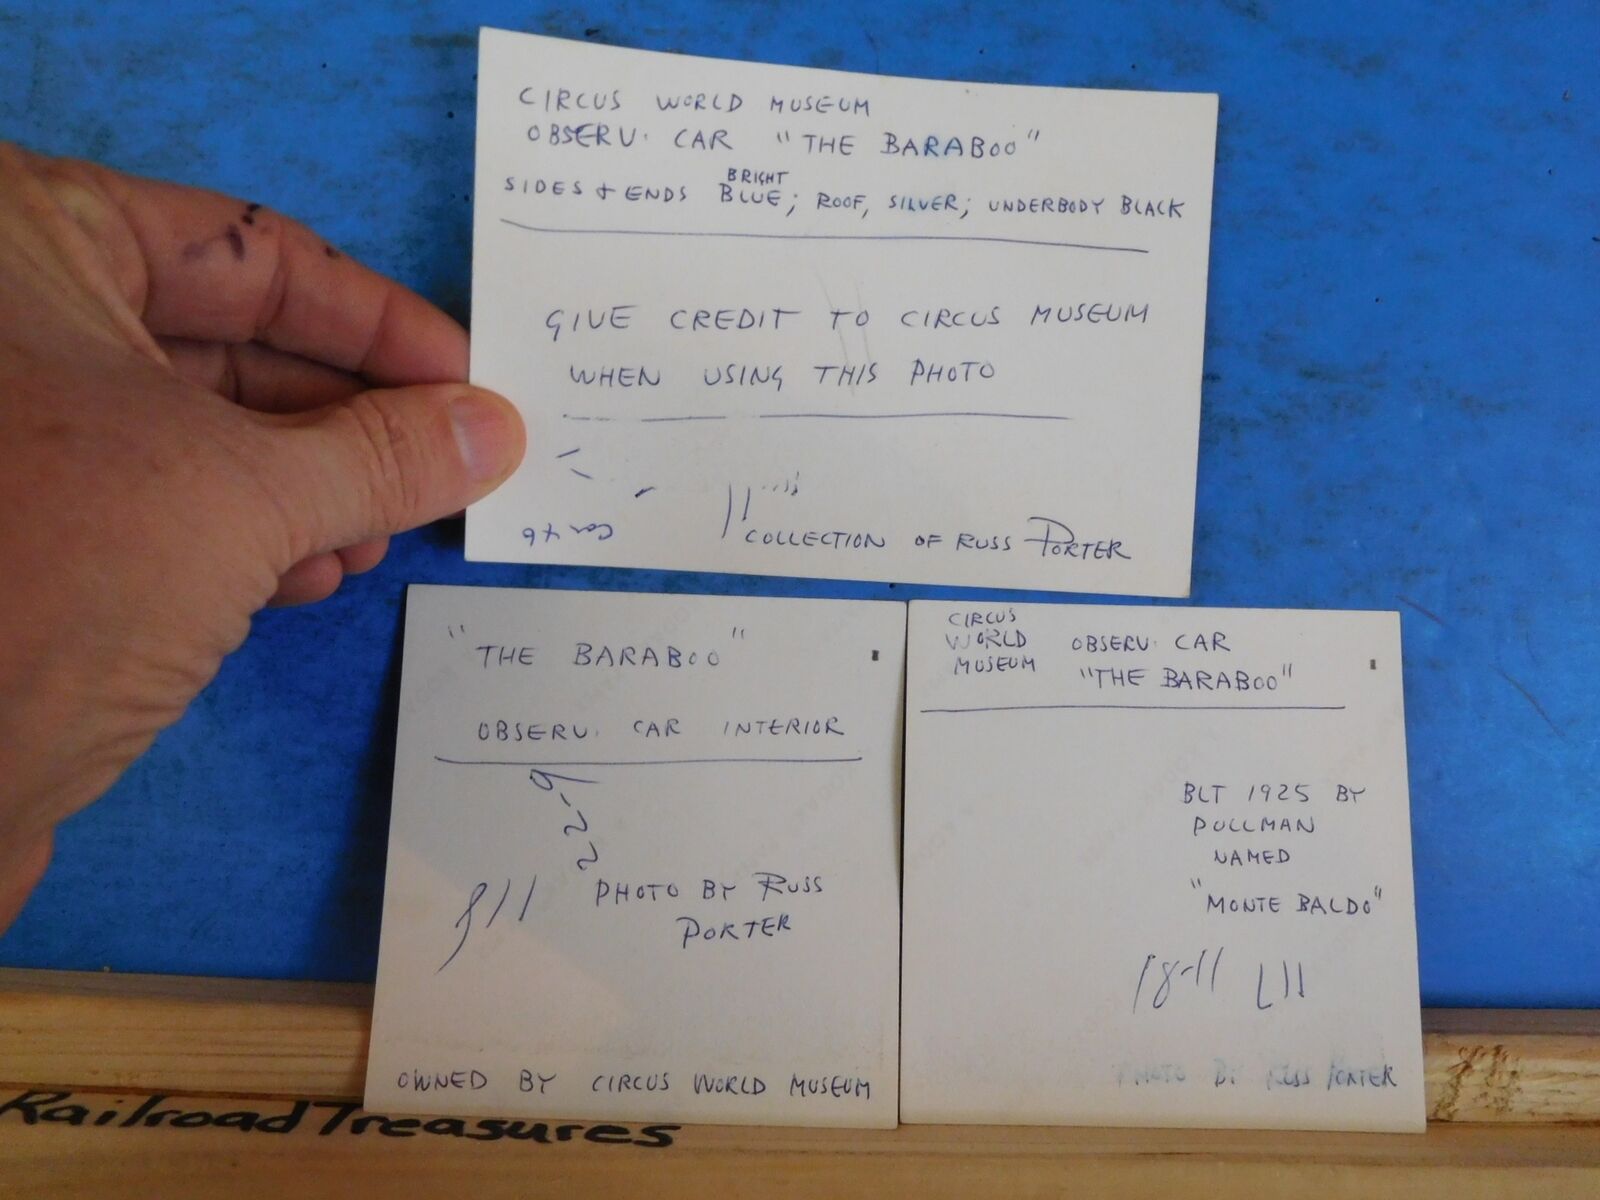 CIRCUS WORLD MUSEUM
OBSERV. CAR "THE BARABOO"
SIDES & ENDS BRIGHT BLUE; ROOF, SILVER; UNDERBODY BLACK
GIVE CREDIT TO CIRCUS MUSEUM
WHEN USING THIS PHOTO
COLLECTION OF RUSS PORTER
"THE BARABOO"
OBSERV. CAR INTERIOR
22-9
PHOTO BY RUSS
PORTER
OWNED BY CIRCUS WORLD MUSEUM
CIRCUS
WORLD
MUSEUM
OBSERV. CAR
"THE BARABOO"
BLT 1925 BY
PULLMAN
NAMED
"MONTE BALDO"
PHOTO BY RUSS PORTER
Railroad Treasures